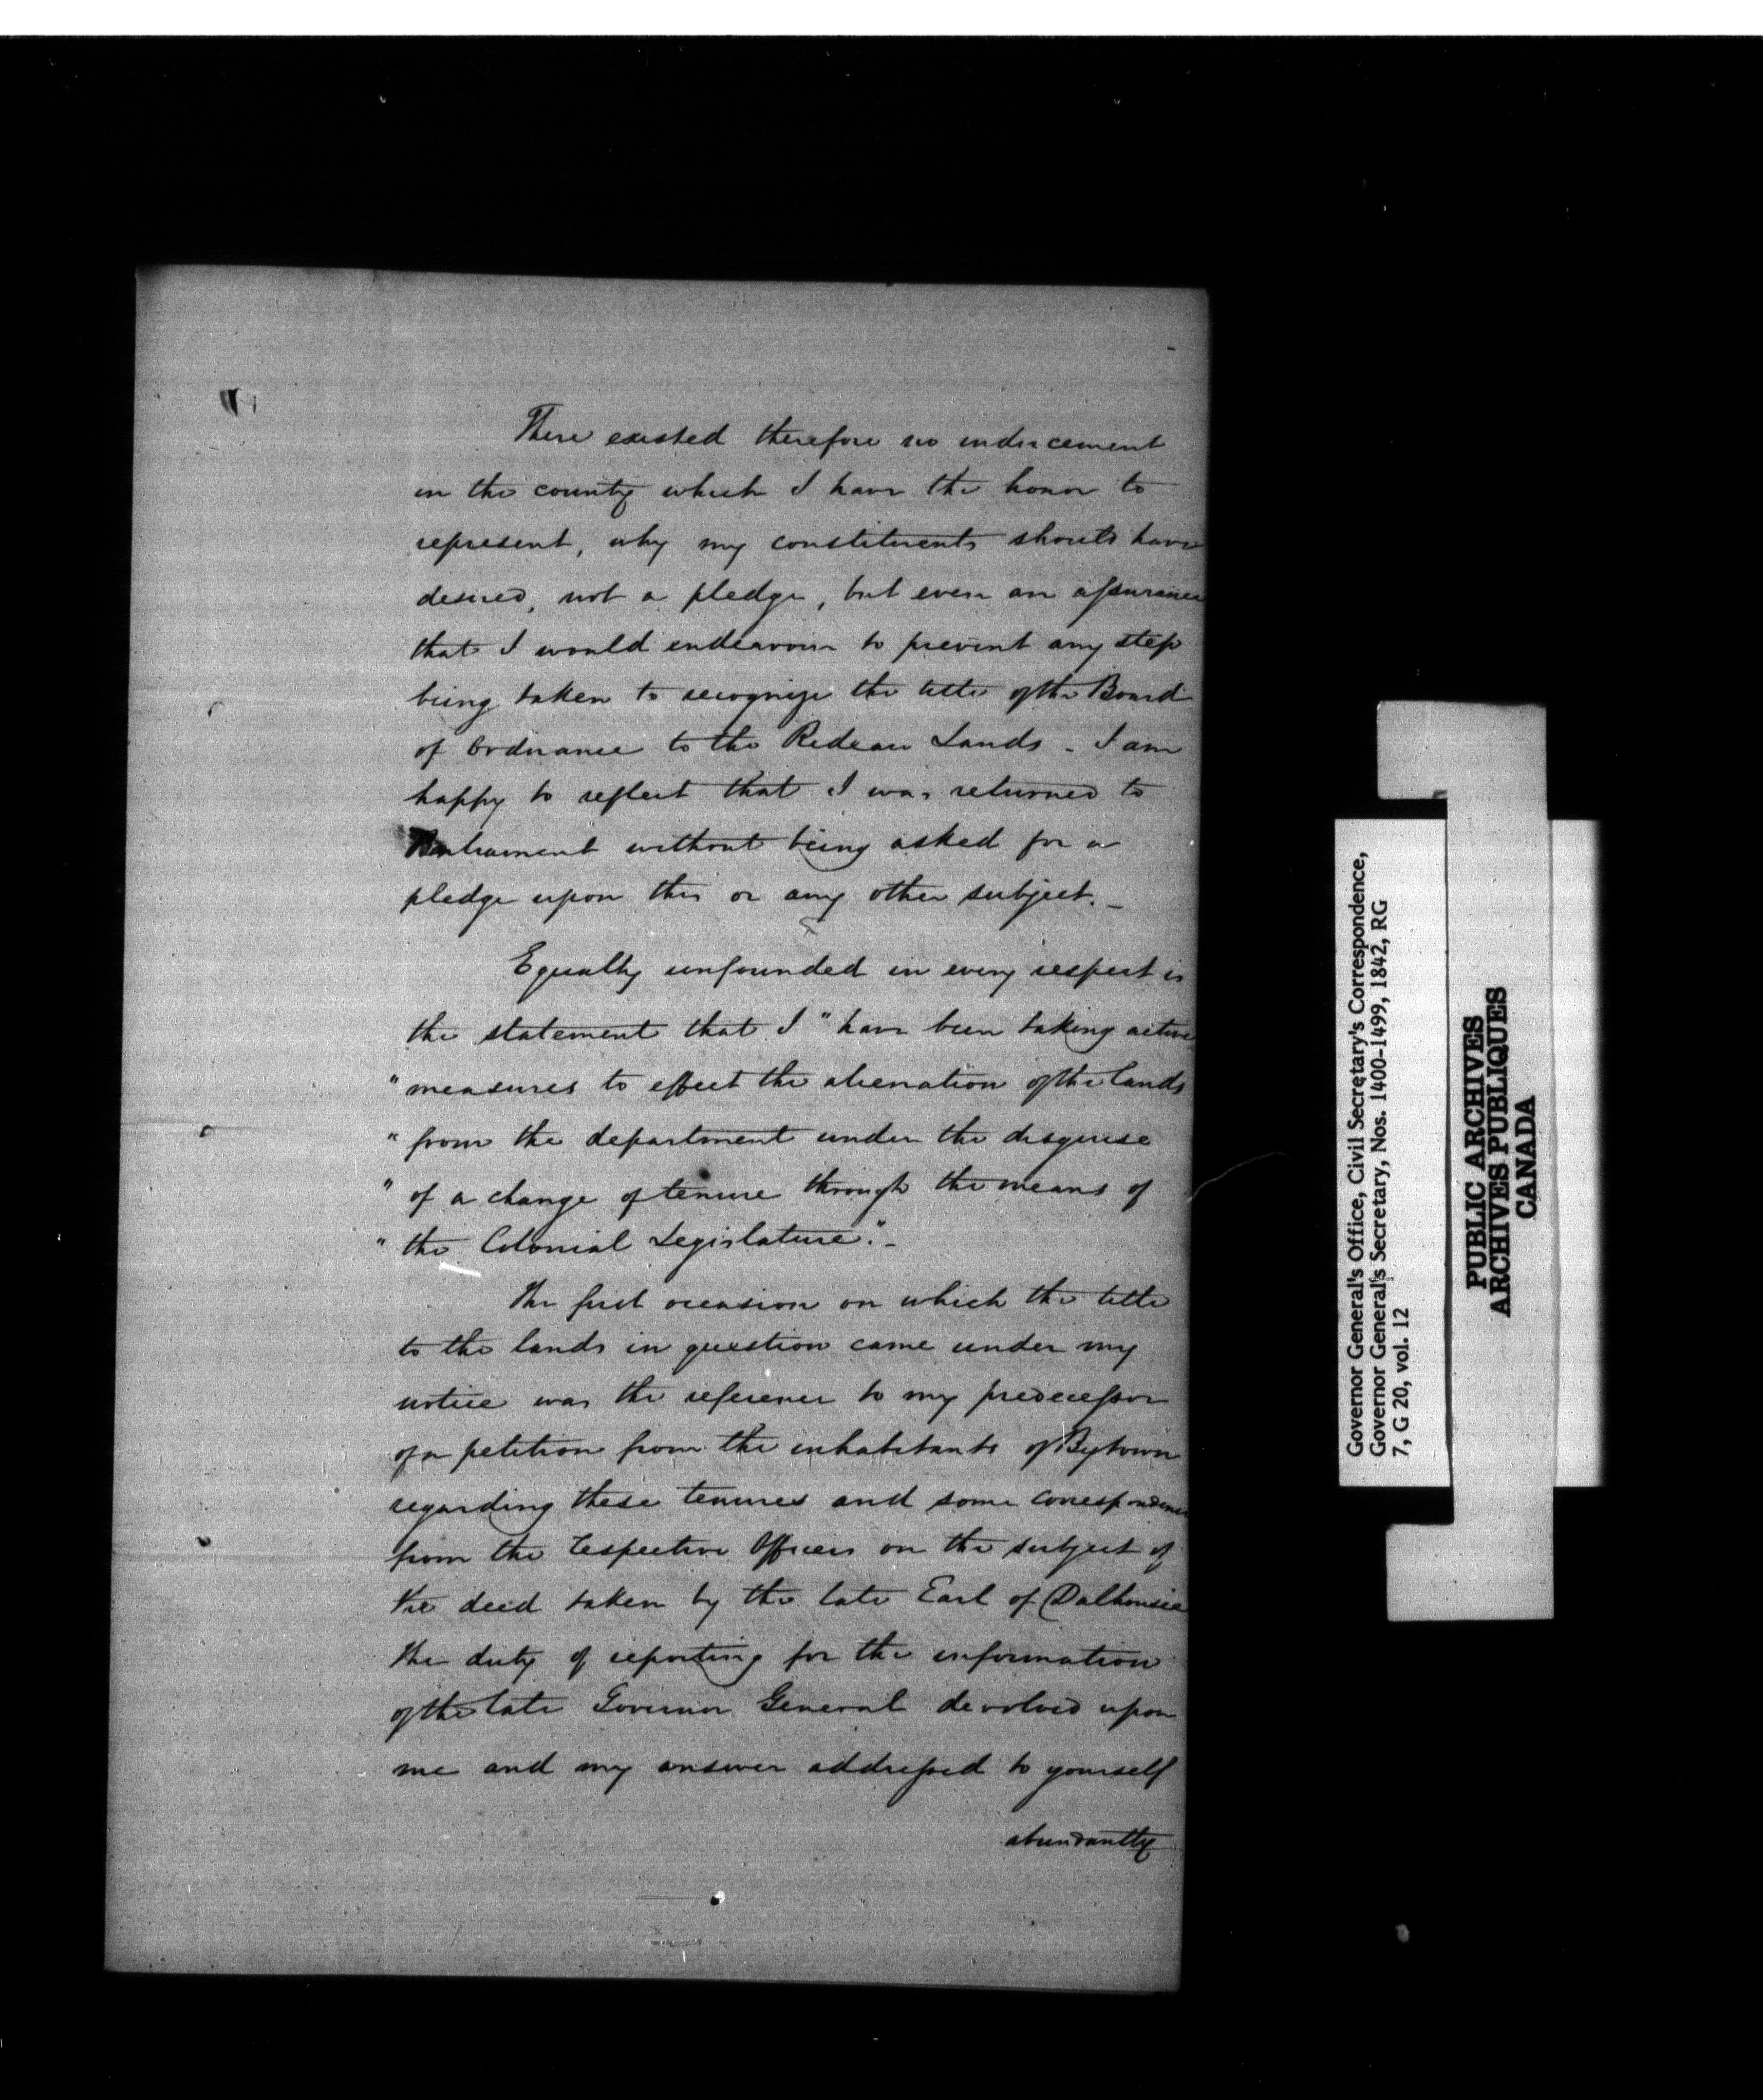 There existed therefore no inducement
in the county which I have the honor to
represent, why my constituents should have
desired, not a pledge, but even an assurance
that I would endeavour to prevent any step
being taken to recognize the title of the Board
of Ordnance to the Rideau Lands - I am
happy to reflect that I was returned to
Parliament without being asked for a
pledge upon this or any other subject. -
Equally unfounded in every respect is
the statement that I "have been taking active
"measures to effect the alienation of the lands
"from the department under the disguise
"of a change of tenure through the means of
"the Colonial Legislature". -
The first occasion on which the title
to the lands in question came under my
notice was the reference to my predecessor
of a petition from the inhabitants of Bytown
regarding these tenures and some correspondence
from the Respective Officers on the subject of
the deed taken by the late Earl of Dalhousie
The duty of reporting for the information
of the late Governor General devolved upon
me and my answer addressed to yourself
abundantly
Governor General's Office, Civil Secretary's Correspondence,
Governor General's Secretary, Nos. 1400-1499, 1842, RG
7, G 20, vol. 12
PUBLIC ARCHIVES
ARCHIVES PUBLIQUES
CANADA